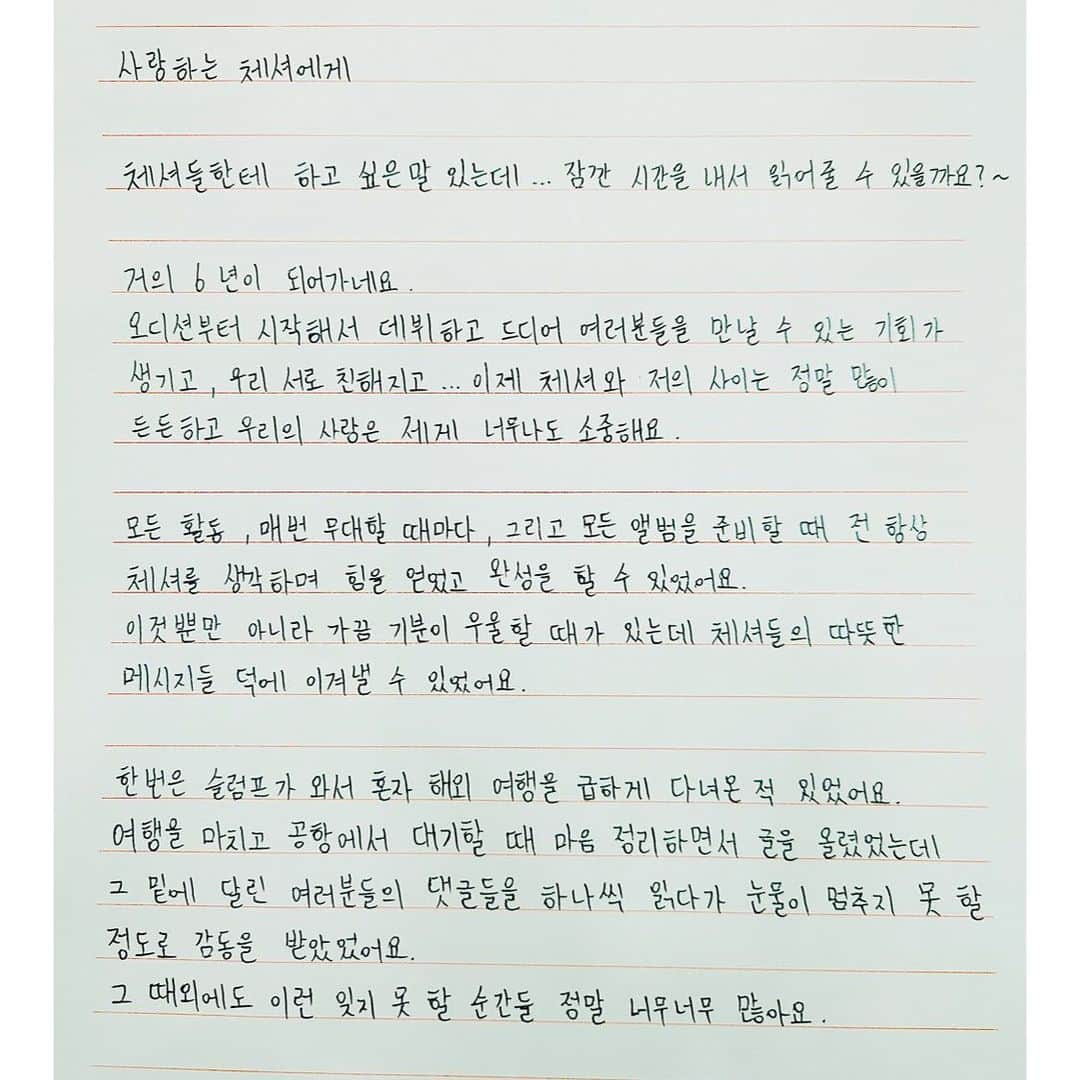 사랑하는 체셔에게
체셔들한테 하고 싶은말 있는데... 잠깐 시간을 내서 읽어줄 수 있을까요?~
거의 6년이 되어가네요.
오디션부터 시작해서 데뷔하고 드디어 여러분들을 만날 수 있는 기회가
생기고, 우리 서로 친해지고... 이제 체셔와 저의 사이는 정말 많이
든든하고 우리의 사랑은 제게 너무나도 소중해요.
모든 활동, 매번 무대할 때마다, 그리고 모든 앨범을 준비할 때 전 항상
체셔를 생각하며 힘을 얻었고 완성을 할 수 있었어요.
이것뿐만 아니라 가끔 기분이 우울할 때가 있는데 체셔들의 따뜻한
메시지들 덕에 이겨낼 수 있었어요.
한번은 슬럼프가 와서 혼자 해외 여행을 급하게 다녀온 적 있었어요.
여행을 마치고 공항에서 대기할 때 마음 정리하면서 글을 올렸었는데
그 밑에 달린 여러분들의 댓글들을 하나씩 읽다가 눈물이 멈추지 못 할
정도로 감동을 받았었어요.
그 때외에도 이런 잊지 못 할 순간들 정말 너무너무 많아요.